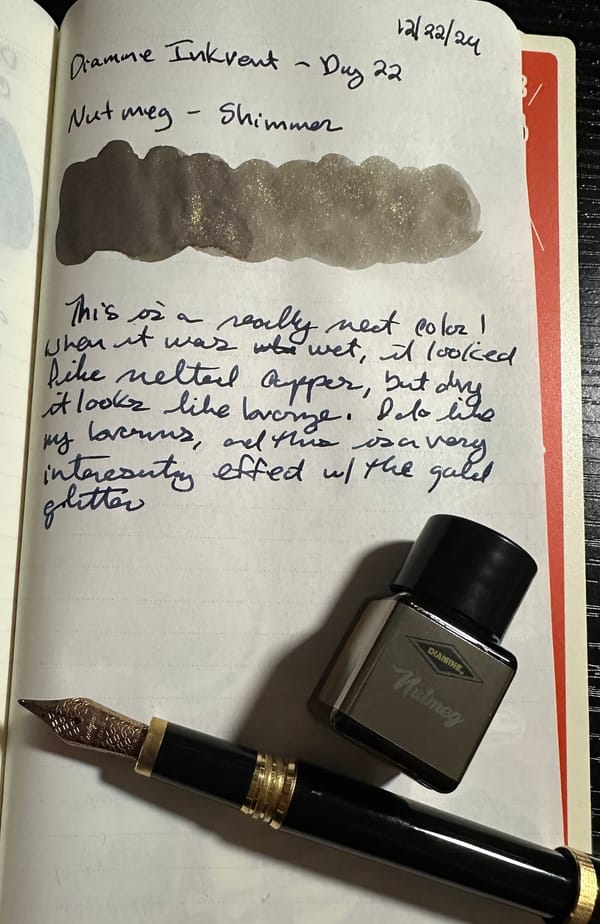 12/22/24
Diamine Inkvent - Day 22
Nutmeg - Shimmer
This is a really neat color!
When it was wet, it looked
like melted copper, but dry
it looks like bronze. I do like
my browns, and this is a very
interesting effect w/ the gold
glitter
DIAMINE
Nutmeg